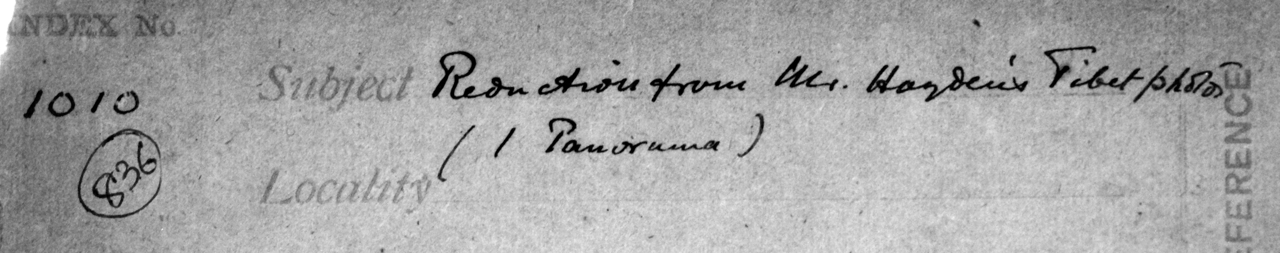 INDEX No.
1010
836
Subject Reduction from Mr. Hayden's Tibet photos
( 1 Panorama )
Locality
REFERENCE